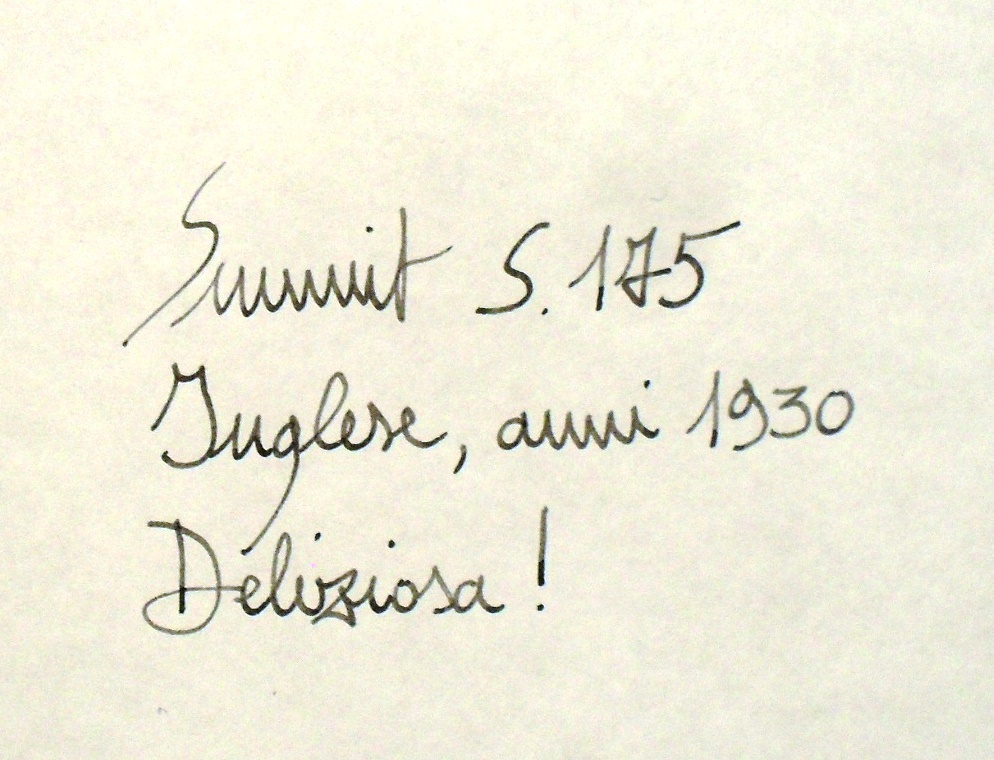 Summit S. 175
Inglese, anni 1930
Deliziosa!